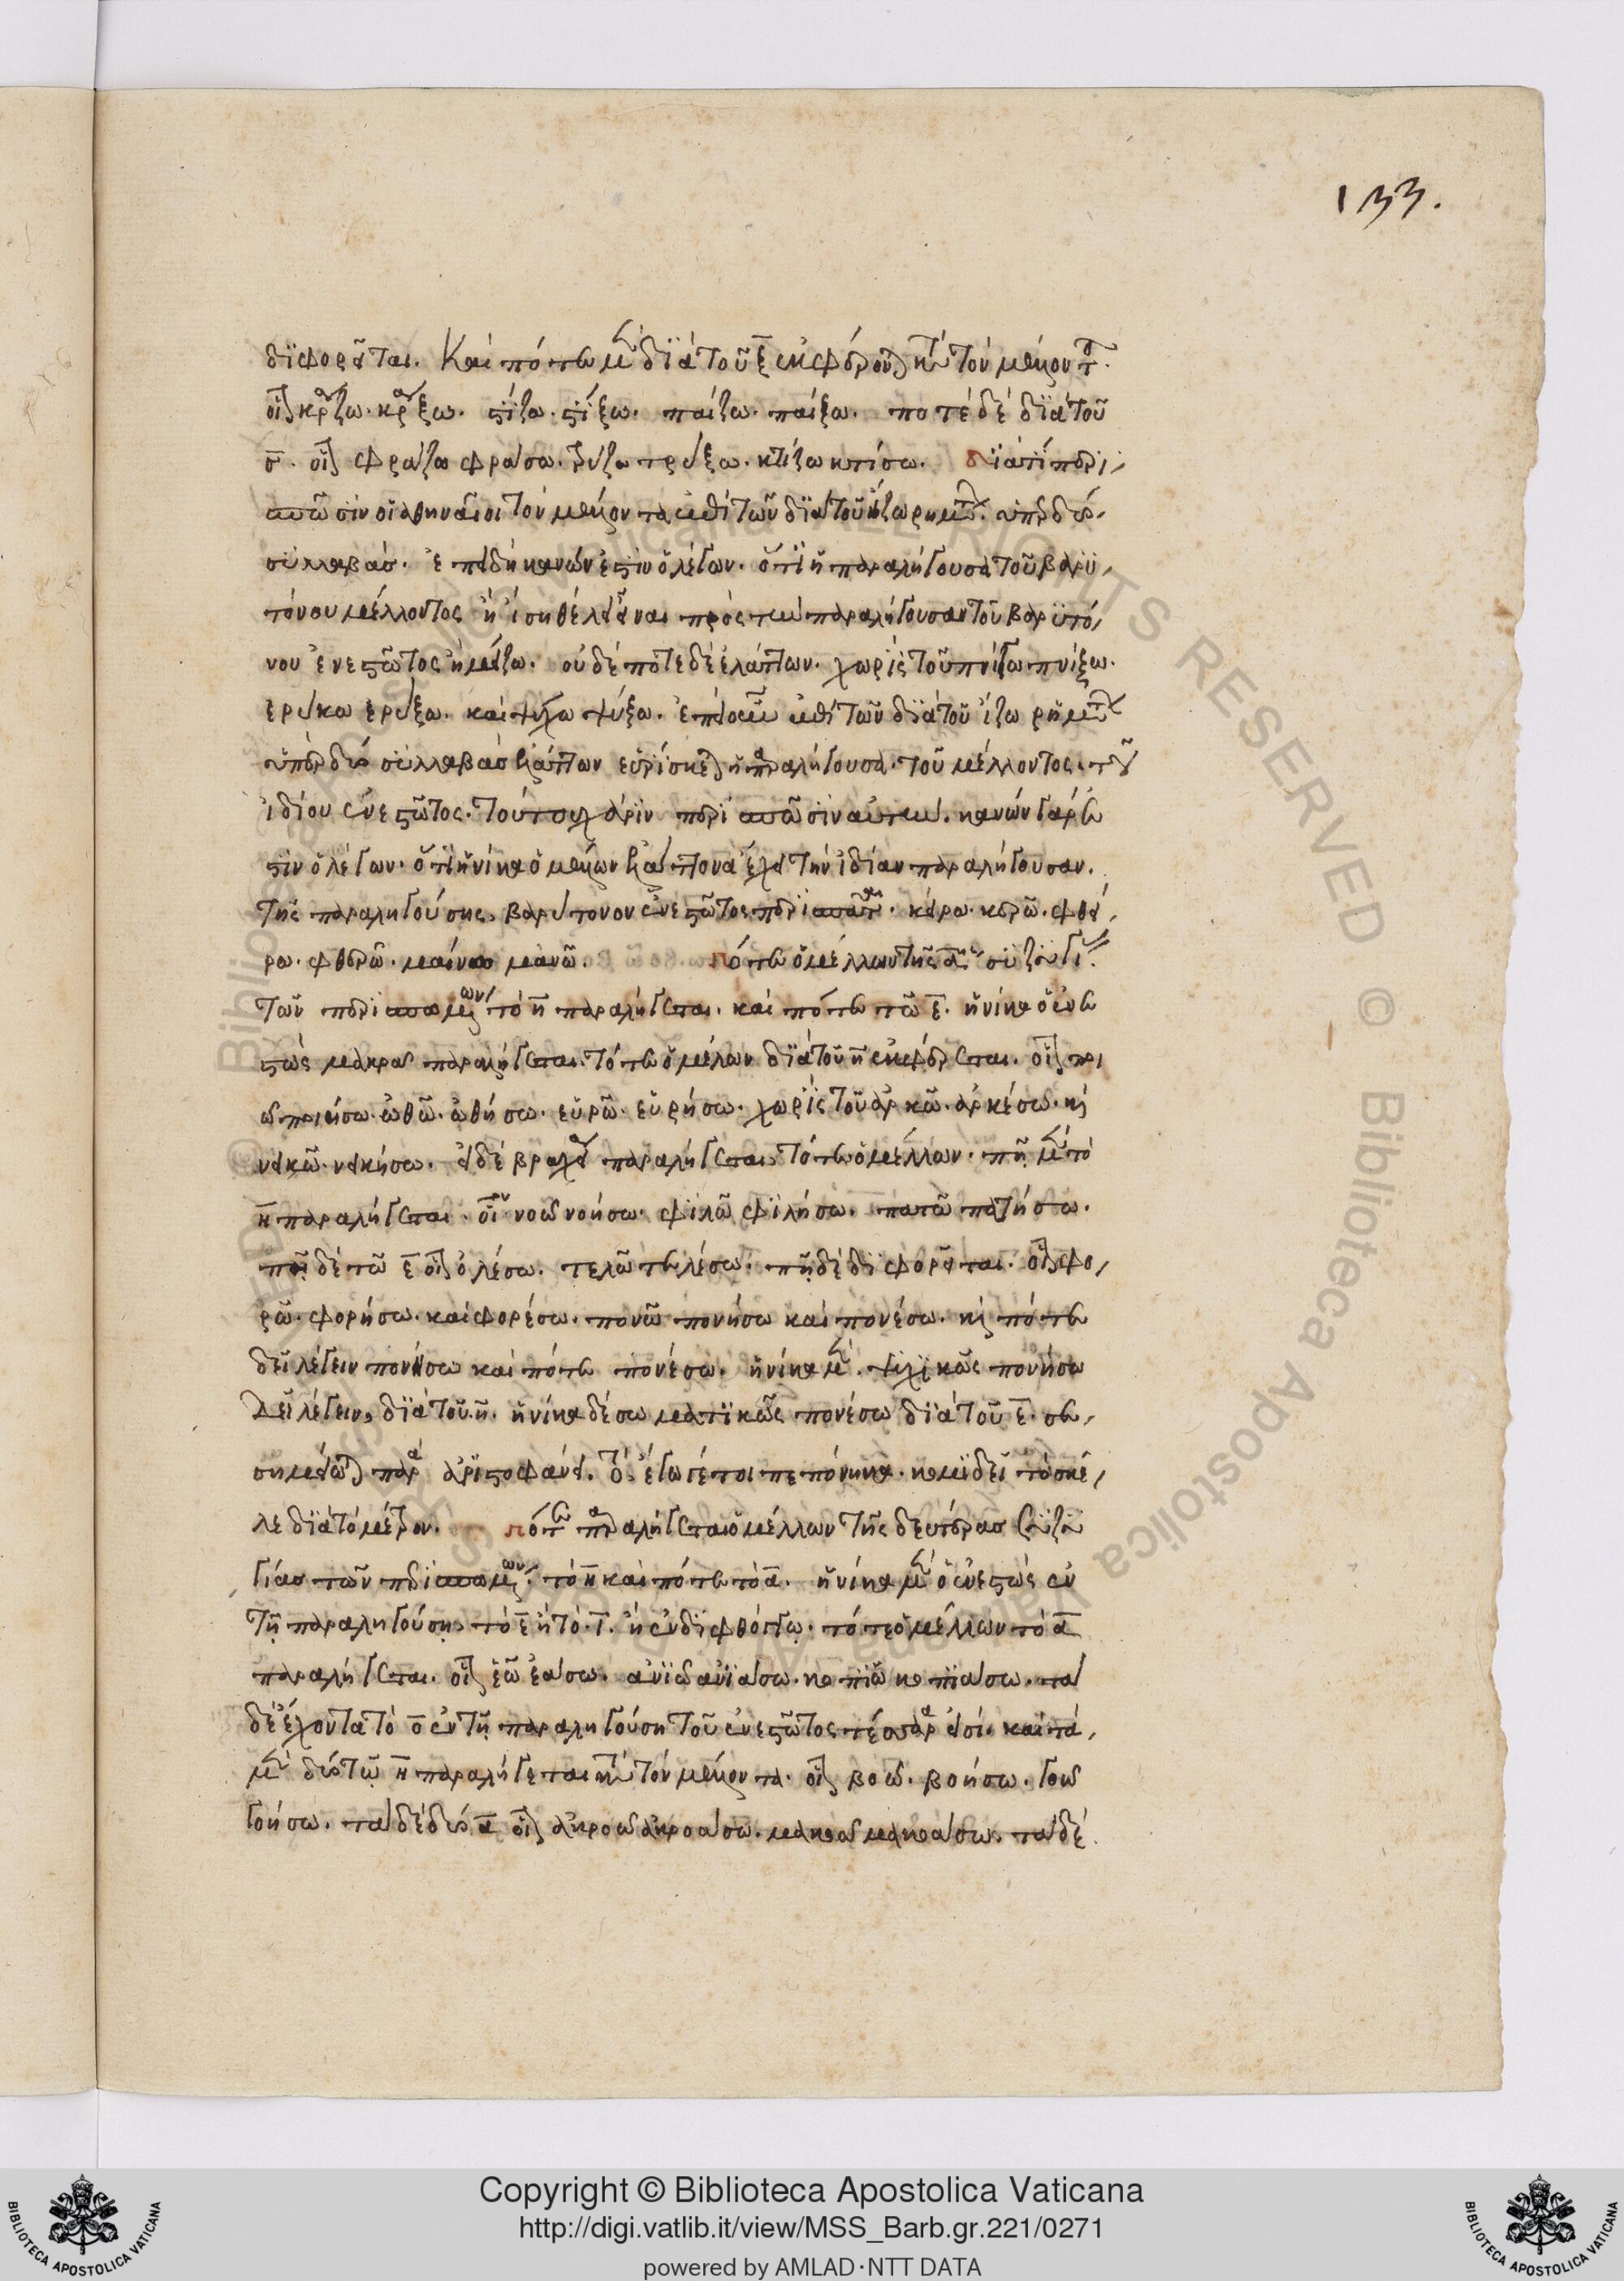 133.
διφορεῖται. Καὶ πότε μὲν διὰ τοῦ ξ ἐκφέρουσι κατὰ τὸν μέλλοντα.
οἷον κράζω. κράξω. στίζω. στίξω. παίζω. παίξω. ποτὲ δὲ διὰ τοῦ
σ. οἷον φράζω φράσω. τρύζω τρύξω. κτίζω κτίσω. Διατί περι,
σπῶσιν οἱ ἀθηναῖοι τὸν μέλλοντα ἐπὶ τῶν διὰ τοῦ ίζω ῥημάτων. ὑπὲρ δύο
συλλαβάς. ἐπειδὴ κανών ἐστιν ὁ λέγων. ὅτι ἡ παραλήγουσα τοῦ βαρυ,
τόνου μέλλοντος ἢ ἴση θέλει εἶναι πρὸς τὴν παραλήγουσαν τοῦ βαρυτό,
νου ἐνεστῶτος ἢ μείζω. οὐδέποτε δὲ ἐλάττων. χωρὶς τοῦ πνίγω πνίξω.
ἐρύκω ἐρύξω. καὶ ψύχω ψύξω. ἐπεὶ οὖν ἐπὶ τῶν διὰ τοῦ ίζω ῥημάτων
ὑπὲρ δύο συλλαβὰς ἐλάττων εὑρίσκεται ἡ παραλήγουσα. τοῦ μέλλοντος. τοῦ
ἰδίου ἐνεστῶτος. τούτου χάριν περισπῶσιν αὐτὴν. κανών γάρ ἐ
στιν ὁ λέγων. ὅτι ἡνίκα ὁ μέλλων ἐλάττονα ἔχει τὴν ἰδίαν παραλήγουσαν.
τῆς παραληγούσης. βαρύτονον ἐνεστῶτος περισπᾶται. κείρω. κερῶ. φθεί,
ρω. φθερῶ. μαίνω μανῶ. πότε ὁ μέλλων τῆς α συζυγί.
τῶν περισπωμένων τὸ η παραλήγεται. καὶ πότε τῶ ε. ἡνίκα ὁ ἐνε
στὼς μακρᾷ παραλήγεται. τότε ὁ μέλλων διὰ τοῦ η ἐκφέρεται. οἷον ποι
ῶ ποιήσω. ὠθῶ. ὠθήσω. εὑρῶ. εὑρήσω. χωρὶς τοῦ ἀρκῶ. ἀρκέσω. καὶ
νεικῶ. νεικήσω. εἰ δὲ βραχεῖ παραλήγεται, τότε ὁ μέλλων. πῆ μὲν τὸ
η παραλήγεται. οἷον νοῶ νοήσω. φιλῶ φιλήσω. πατῶ πατήσω.
πῆ δὲ τῶ ε οἷον ὀλέσω. τελῶ τελέσω. πῆ δὲ διφορεῖται. οἷον φο,
ρῶ. φορήσω. καὶ φορέσω. πονῶ πονήσω καὶ πονέσω. καὶ πότε
δεῖ λέγειν πονήσω καὶ πότε πονέσω. ἡνίκα μὲν. ψυχικῶς πονήσω
δεῖ λέγειν, διὰ τοῦ η. ἡνίκα δὲ σωματικῶς πονέσω διὰ τοῦ ε. σε,
σημείωται παρὰ ἀριστοφάνει. τὸ. ἐγωγέ τοι πεπόνηκα. κομιδεῖ τὼ σκέ,
λε διὰ τὸ μέτρον. πότε παραλήγεται ὁ μέλλων τῆς δευτέρας συζυ
γίας τῶν περισπωμένων. τὸ η καὶ πότε τὸ α. ἡνίκα μὲν ὁ ἐνεστὼς ἐν
τῆ παραληγούσῃ. τὸ ε ἢ τὸ. ι. ἢ ἐν διφθόγγῳ. τότε ὁ μέλλων τὸ α
παραλήγεται. οἷον ἐῶ ἐάσω. ἀνιῶ ἀνιάσω. κοπιῶ κοπιάσω. τὰ
δὲ ἔχοντα τὸ ο ἐν τῆ παραληγούση τοῦ ἐνεστῶτος τέσσαρά εἰσι. καὶ τὰ,
μὲν δύο τῶ η παραλήγεται κατὰ τὸν μέλλοντα. οἷον βοῶ. βοήσω. γοῶ
γοήσω. τὰ δὲ δύο α οἷον ἀκροῶ ἀκροάσω. μακοῶ μακοάσω. τὰ δὲ.
Copyright © Biblioteca Apostolica Vaticana
http://digi.vatlib.it/view/MSS_Barb.gr.221/0271
powered by AMLAD·NTT DATA